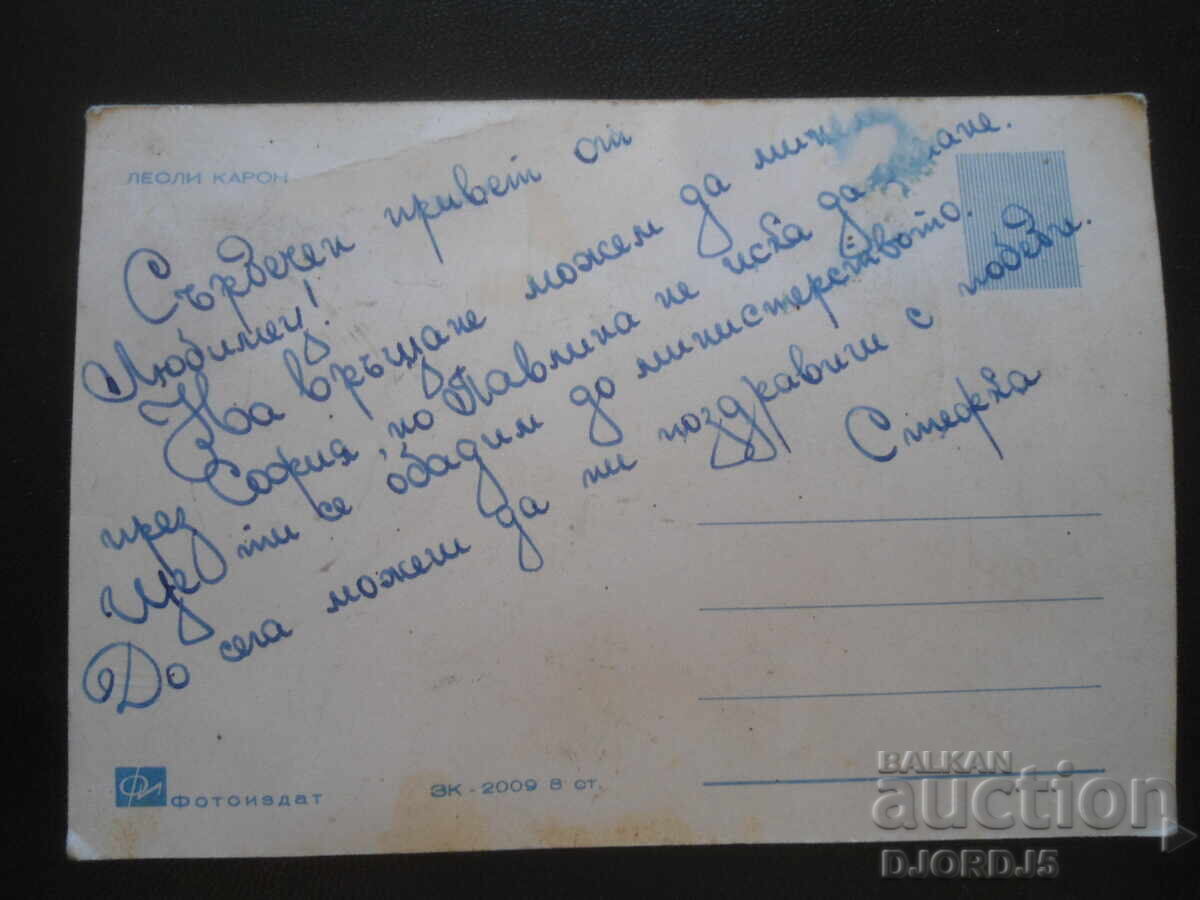 ЛЕОЛИ КАРОН
Сърдечен привет от
Любимец!
На връщане можем да минем
през София, но Павлина не иска да
Ще ти се обадим до министерството.
До сега можеш да ни поздравиш с победи.
Стефка
Фотоиздат
ЗК - 2009 8 ст.
BALKAN
auction
DJORDJ5